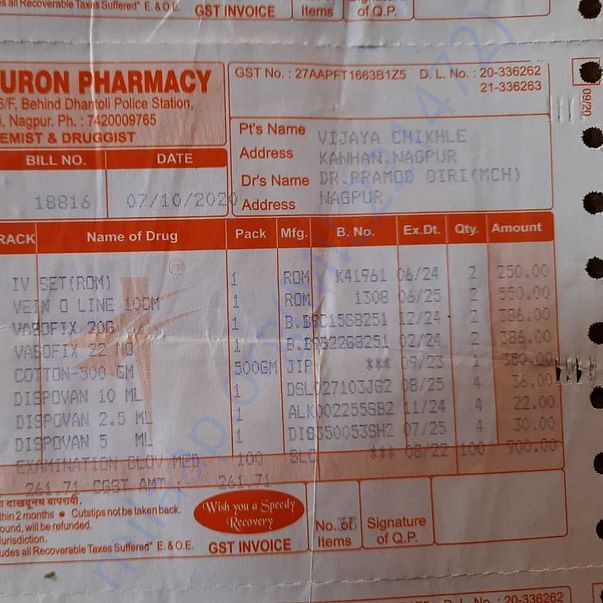 es all Recoverable Taxes Suffered" E. & O.E. GST INVOICE Items of Q.P.
URON PHARMACY
6/F, Behind Dhantoli Police Station,
i, Nagpur. Ph. : 7420009765
EMIST & DRUGGIST
GST No. : 27AAPFT1663B1Z5 D. L. No. : 20-336262
21-336263
09/20
Pt's Name VIJAYA CHIKHLE
Address KANHAN.NAGPUR
Dr's Name DR.PRAMOD GIRI(MCH)
Address NAGPUR
BILL NO. DATE
18816 07/10/2020
RACK Name of Drug Pack Mfg. B. No. Ex.Dt. Qty. Amount
IV SET(ROM) 1 ROM K41961 06/24 2 250.00
VEIN O LINE 10CM 1 ROM 1308 06/25 2 550.00
VASOFIX 20G 1 12/24 2 386.00
VASOFIX 22 NO 1 02/24 2 386.00
COTTON-500 GM 500GM JIP *** 09/23 1
DISPOVAN 10 ML DSL027103JG2 08/25 4 36.00
DISPOVAN 2.5 ML 1 ALK002255SB2 11/24 4 22.00
DISPOVAN 5 ML 1 350053SH2 07/25 4 30.00
EXAMINATION GLOV MED 100 GLO *** 08/22 100 900.00
261.71 CGST AMT : 261.71
दाखवूनच यापरावी.
thin 2 months • Cutstips not be taken back.
ound, will be refunded.
Jurisdiction.
udes all Recoverable Taxes Suffered" E.& O.E. GST INVOICE
Wish you a Speedy
Recovery
No. of
Items
Signature
of Q.P.
D. L. No. : 20-336262